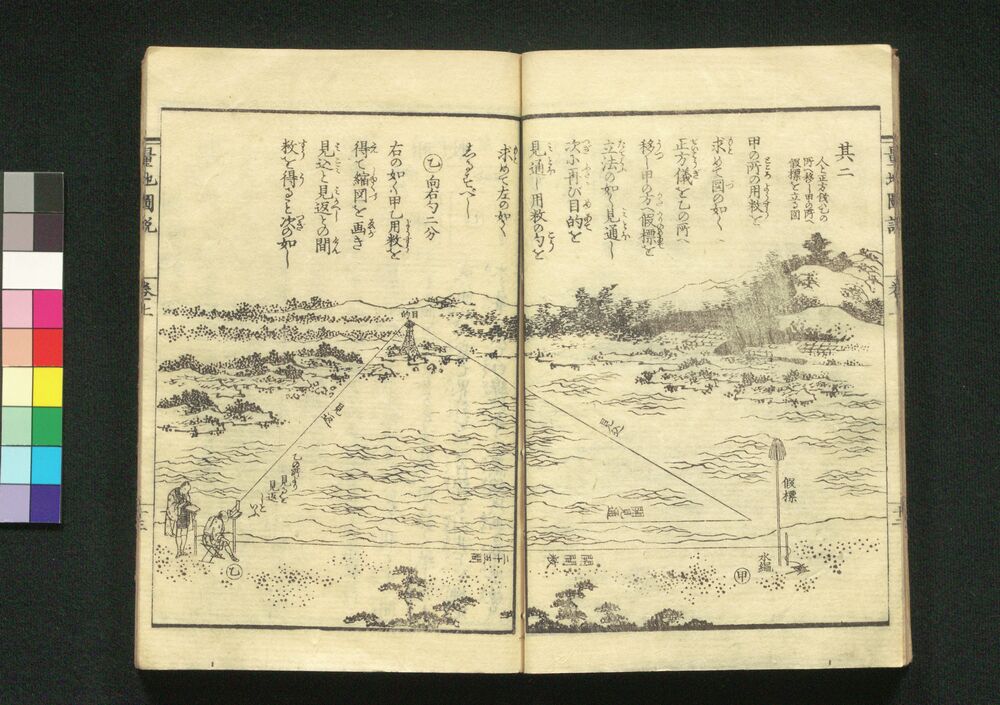 其二
人と正方儀と乙の
所へ移し甲の所へ
假標を立る図
甲の所の用数を
求めて図の如く
正方儀を乙の所へ
移し甲の方へ假標を
立法の如く見通し
次に再び目的を
見通し用数の勺を
求めて左の如く
しるすべし
乙向右勺二分
右の如く甲乙用数を
得て縮図を画き
見込と見返との間
数を得ること次の如し
目的
見込
見返
乙の所より
見るを
見返
といふ
見通間
間数
二十五間
假標
水縄
甲
乙
量地圖説
巻上